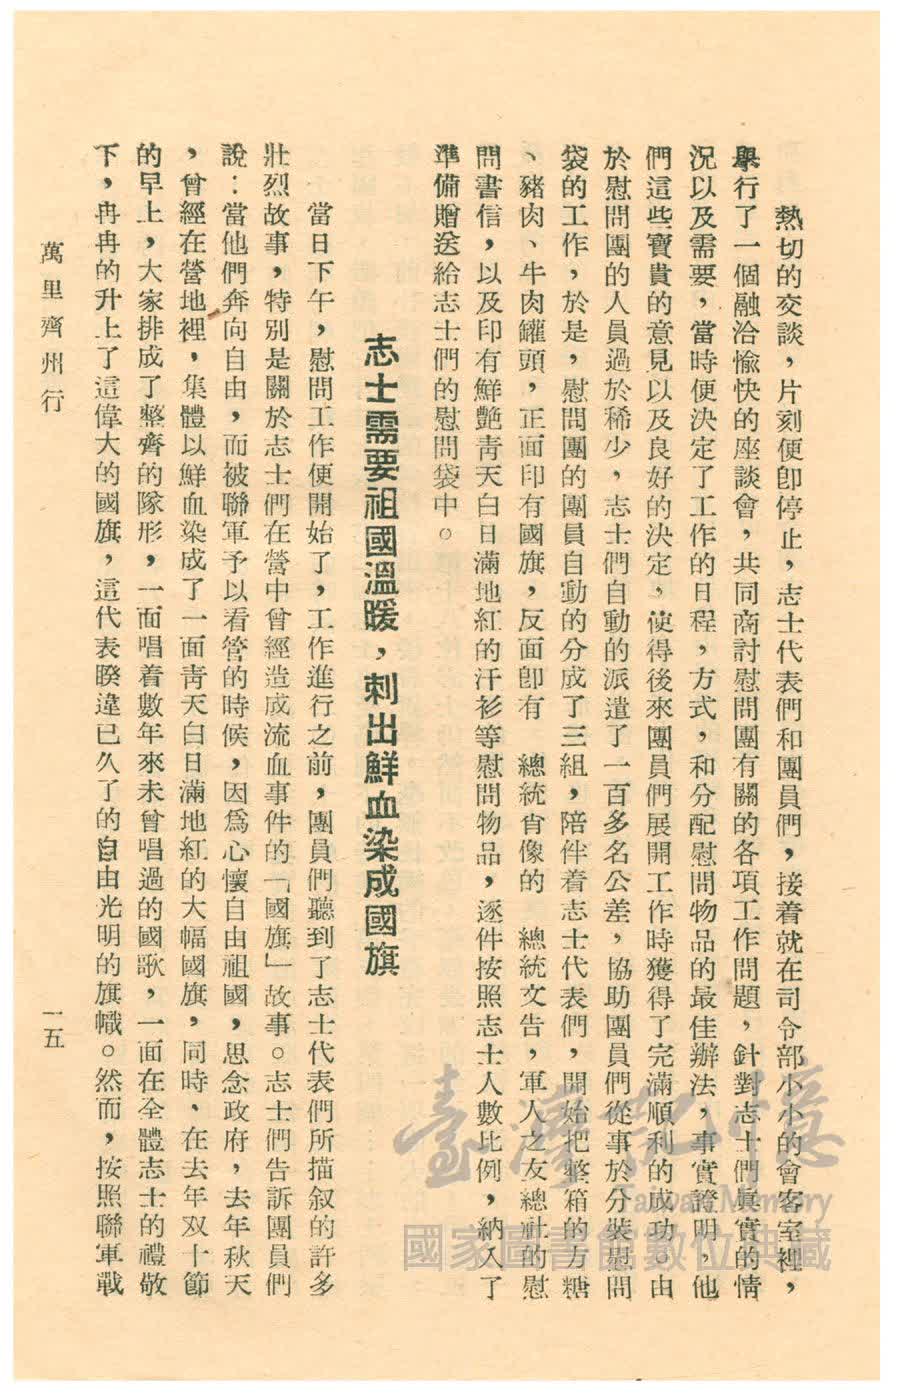 熱切的交談，片刻便卽停止，志士代表們和團員們，接着就在司令部小小的會客室裡，
舉行了一個融洽愉快的座談會，共同商討慰問團有關的各項工作問題，針對志士們眞實的情
況以及需要，當時便決定了工作的日程，方式，和分配慰問物品的最佳辦法，事實證明，他
們這些寶貴的意見以及良好的決定，使得後來團員們展開工作時獲得了完滿順利的成功。由
於慰問團的人員過於稀少，志士們自動的派遣了一百多名公差，協助團員們從事於分裝慰問
袋的工作，於是，慰問團的團員自動的分成了三組，陪伴着志士代表們，開始把整箱的方糖
、豬肉、牛肉罐頭，正面印有國旗，反面卽有　總統肖像的　總統文告，軍人之友總社的慰
問書信，以及印有鮮艷靑天白日滿地紅的汗衫等慰問物品，逐件按照志士人數比例，納入了
準備贈送給志士們的慰問袋中。
志士需要祖國溫暖，刺出鮮血染成國旗
當日下午，慰問工作便開始了，工作進行之前，團員們聽到了志士代表們所描叙的許多
壯烈故事，特別是關於志士們在營中曾經造成流血事件的「國旗」故事。志士們告訴團員們
說：當他們奔向自由，而被聯軍予以看管的時候，因爲心懷自由祖國，思念政府，去年秋天
，曾經在營地裡，集體以鮮血染成了一面靑天白日滿地紅的大幅國旗，同時、在去年双十節
的早上，大家排成了整齊的隊形，一面唱着數年來未曾唱過的國歌，一面在全體志士的禮敬
下，冉冉的升上了這偉大的國旗，這代表睽違已久了的自由光明的旗幟。然而，按照聯軍戰
萬里齊州行
一五
臺灣記憶
Taiwan Memory
國家圖書館數位典藏